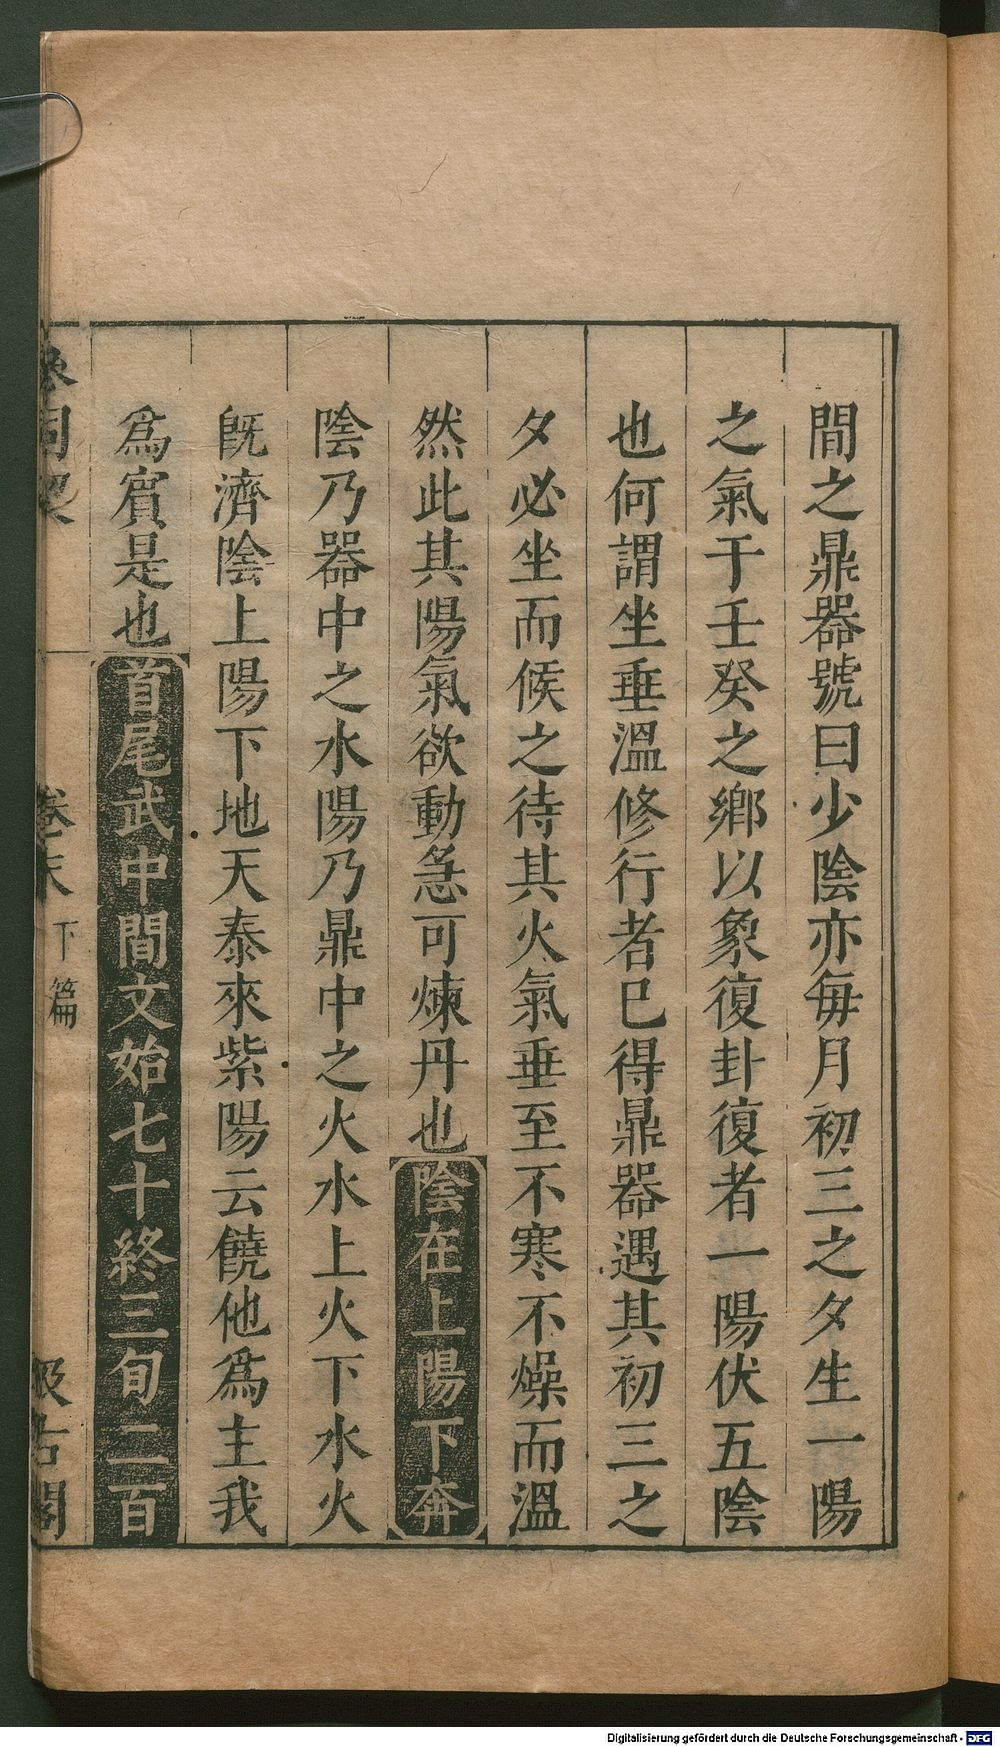 間之鼎器號曰少陰亦每月初三之夕生一陽
之氣于壬癸之鄉以象復卦復者一陽伏五陰
也何謂坐垂溫修行者巳得鼎器遇其初三之
夕必坐而候之待其火氣垂至不寒不燥而溫
然此其陽氣欲動急可煉丹也陰在上陽下奔
陰乃器中之水陽乃鼎中之火水上火下水火
旣濟陰上陽下地天泰來紫陽云饒他爲主我
爲賓是也首尾武中間文始七十終三旬二百
參同契 卷末 下篇 汲古閣
Digitalisierung gefördert durch die Deutsche Forschungsgemeinschaft - DFG